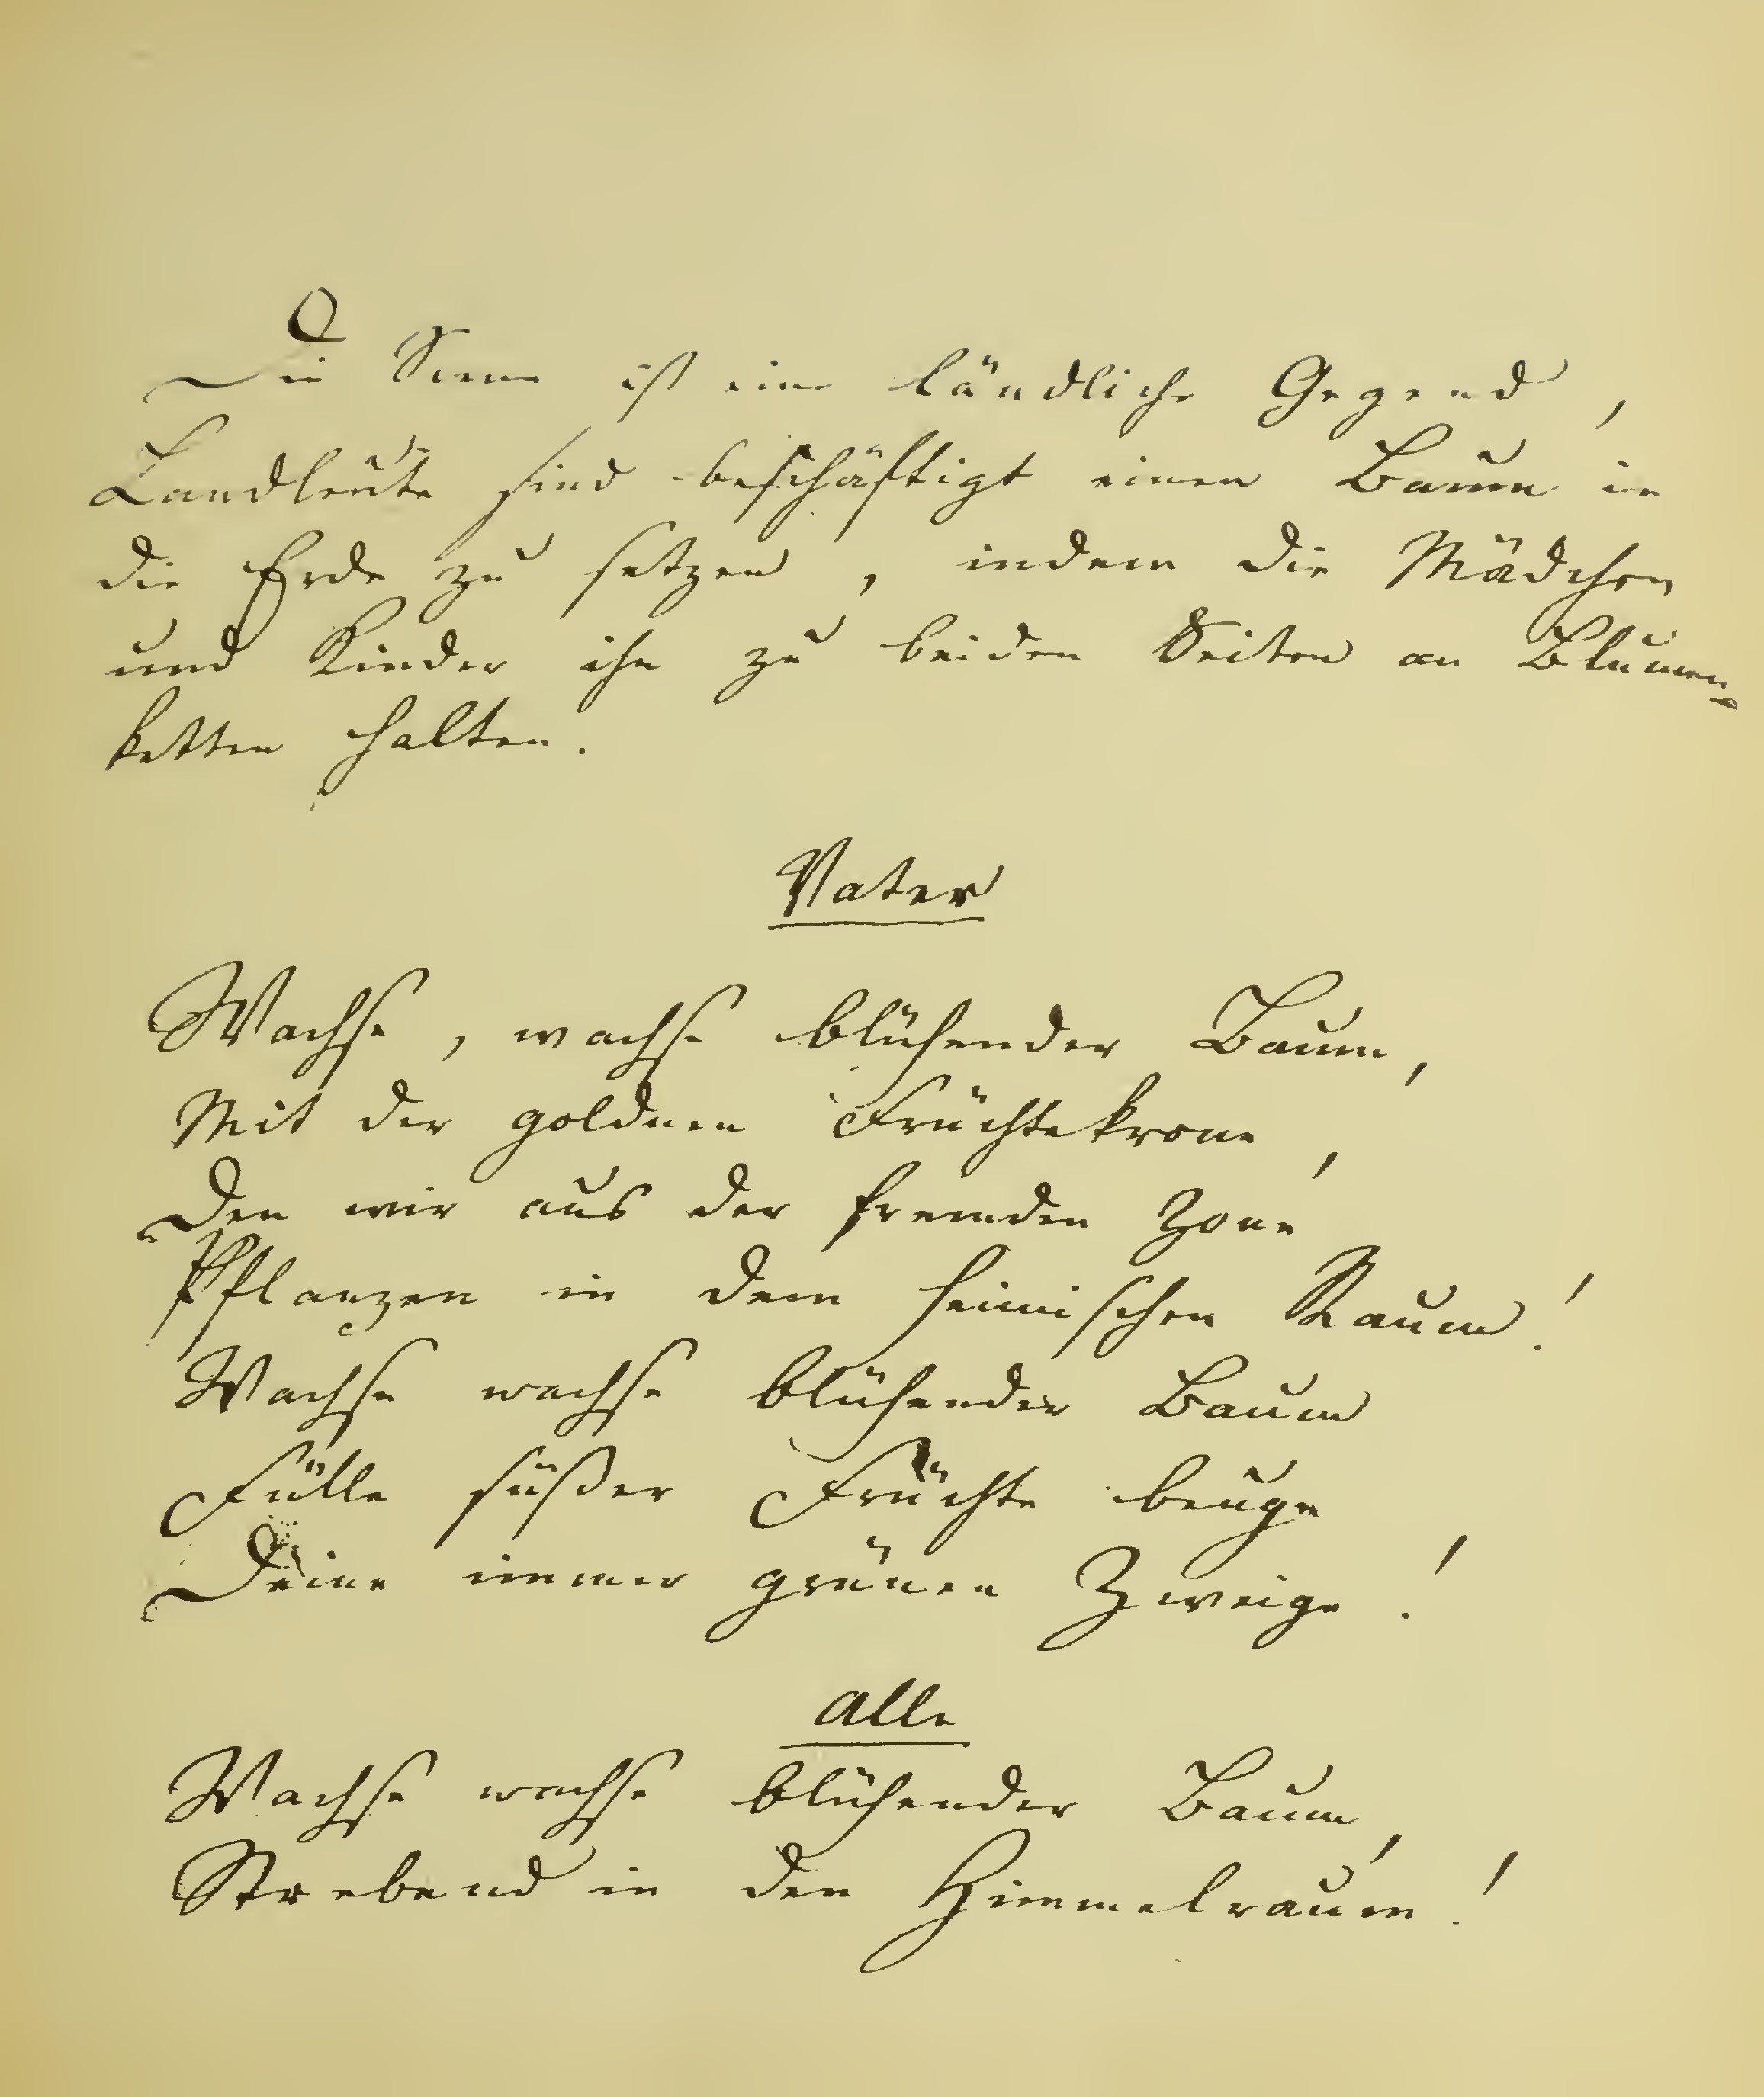 Die Scene ist eine ländliche Gegend,
Landleute sind beschäftigt einen Baum in
die Erde zu setzen, indem die Mädchen
und Kinder ihn zu beiden Seiten an Blumen-
ketten halten.
Vater
Wachse, wachse blühender Baum,
Mit der goldnen Früchtekrone,
Den wir aus der fremden Zone
Pflanzen in dem heimischen Raum!
Wachse wachse blühender Baum
Fülle süßer Früchte beuge
Deine immer grünen Zweige!
Alle
Wachse wachse blühender Baum,
Strebend in den Himmelraum!